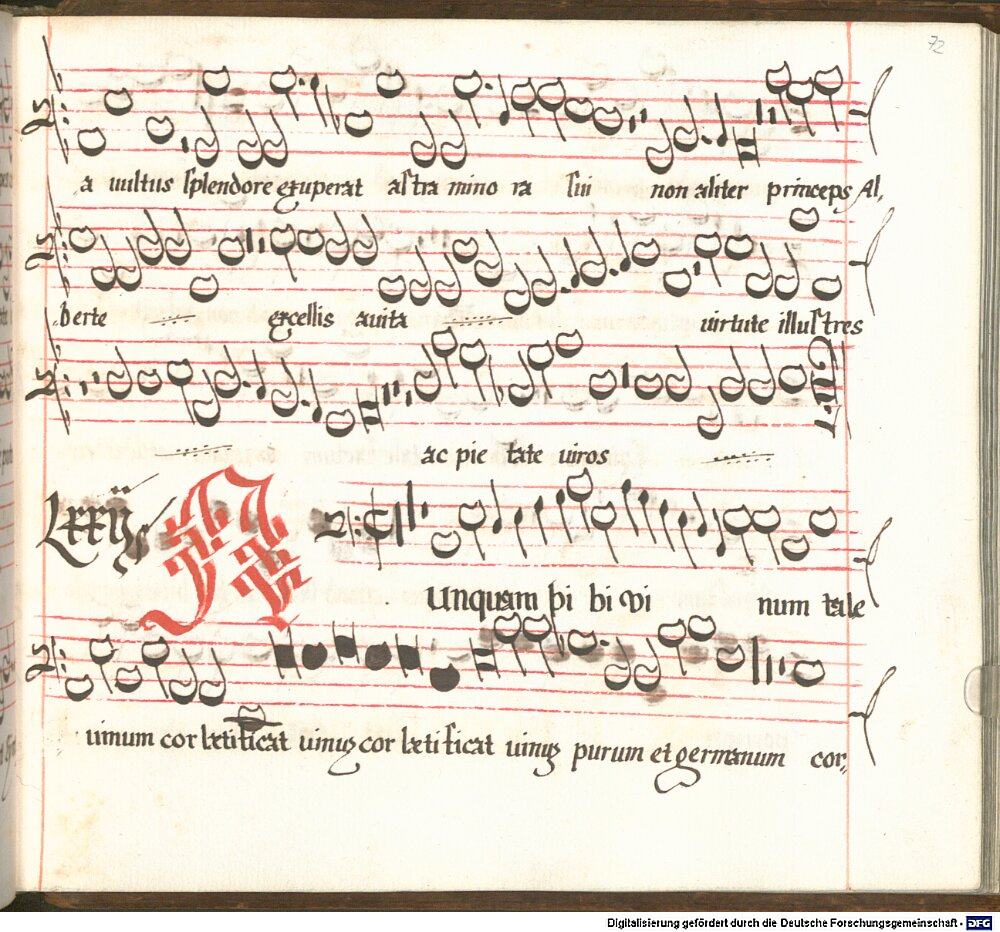 72
a uultus splendore exuperat astra mino ra sui non aliter princeps Al,
berte excellis auita uirtute illustres
ac pie tate uiros
Lxxij
NUnquam bi bi vi num tale
uinum cor lætificat uinū cor lætificat uinū purum et germanum cor,
Digitalisierung gefördert durch die Deutsche Forschungsgemeinschaft - DFG